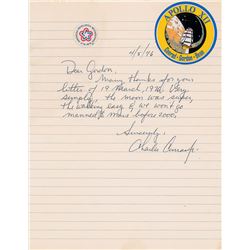 APOLLO XII
Conrad · Gordon · Bean
4/5/76
Dear Gordon,
Many thanks for your
letter of 19 March, 1976. Very
simply, the moon was super,
the walking easy & we won't go
manned to Mars before 2000.
Sincerely,
Charles Conrad Jr.